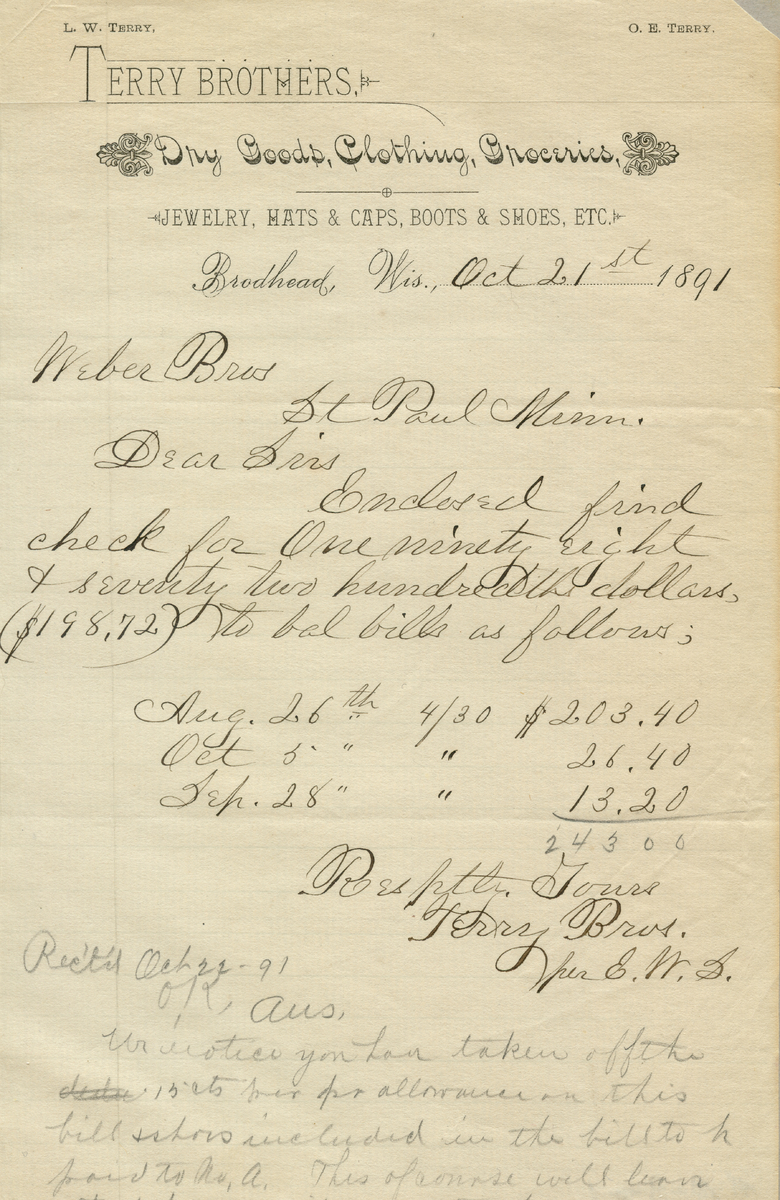 L. W. Terry,
O. E. Terry.
Terry Brothers,
Dry Goods, Clothing, Groceries,
Jewelry, Hats & Caps, Boots & Shoes, Etc.
Brodhead, Wis., Oct 21st 1891
Weber Bros
St Paul Minn.
Dear Sirs
Enclosed find
check for One ninety eight
& seventy two hundredths dollars,
($198,72) to bal bills as follows;
Aug. 26th 4/30 $203.40
Oct 5 " " 26.40
Sep. 28 " " 13.20
24300
Resptly. Yours
Terry Bros.
per E. W. S.
Rec'd Oct 22-91
OK, Ans.
We notice you have taken off the
15cts per pr allowance on this
bill shoes included in the bill to
paid to No, A. This of course will leave